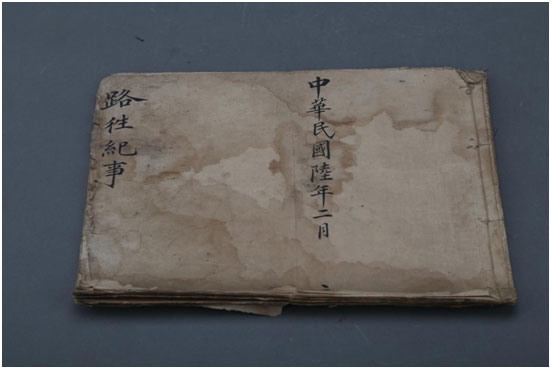 中華民國陸年二月
路徃紀事